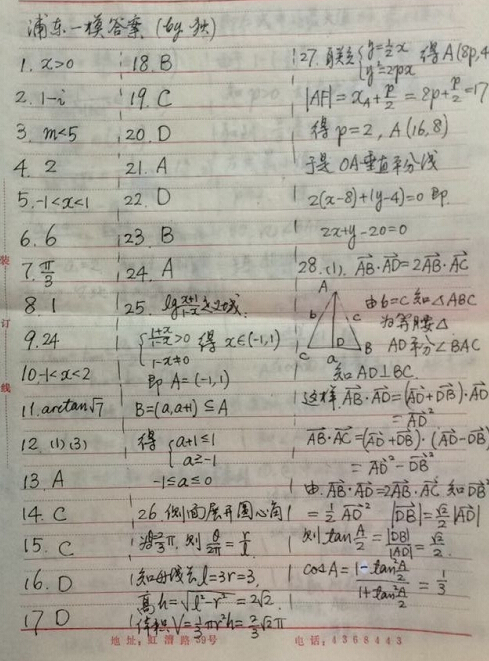 浦东一模答案 (by 狄)
1. x>0
2. 1-i
3. m<5
4. 2
5. -1<x<1
6. 6
7. π/3
8. 1
9. 24
10. -1<x<2
11. arctan√7
12. (1)(3)
13. A
14. C
15. C
16. D
17 D
18. B
19. C
20. D
21. A
22. D
23. B
24. A
25. lg (x+1)/(1-x) 定义域
{ (1+x)/(1-x)>0 得 x∈(-1,1)
1-x≠0
即 A=(-1,1)
B=(a,a+1) ⊆ A
得 { a+1≤1
a≥-1
-1≤a≤0
26. 侧面展开图心角
为 2/3π, 则 θ/2π = r/l
知母线长 l=3r=3,
高 h=√(l²-r²) = 2√2.
体积 V=1/3πr²h=2/3√2π
27. 联立 { y=1/2x 得 A(8p,4
y²=2px
|AF|=x_A+p/2=8p+p/2=17
得 p=2, A(16,8)
于是 OA 垂直平分线
2(x-8)+(y-4)=0 即
2x+y-20=0
28.(1). AB·AD=2AB·AC
A
b c
C a D B
由 b=c 知△ABC
为等腰△
AD平分∠BAC
知 AD⊥BC.
这样 AB·AD=(AD+DB)·AD
=AD²
AB·AC=(AD+DB)·(AD-DB)
=AD²-DB²
由 AB·AD=2AB·AC 知 DB²
=1/2 AD² |DB|=√2/2|AD|
则 tan A/2=|DB|/|AD|=√2/2.
cosA=(1-tan²A/2)/(1+tan²A/2)=1/3
装
订
线
地址: 虹漕路39号
电话: 4368443